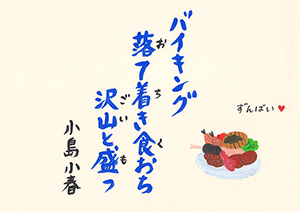 バイキング
落て着き食おら
おちく
沢山と盛っ
ごいも
小島小春
ずんばい♥